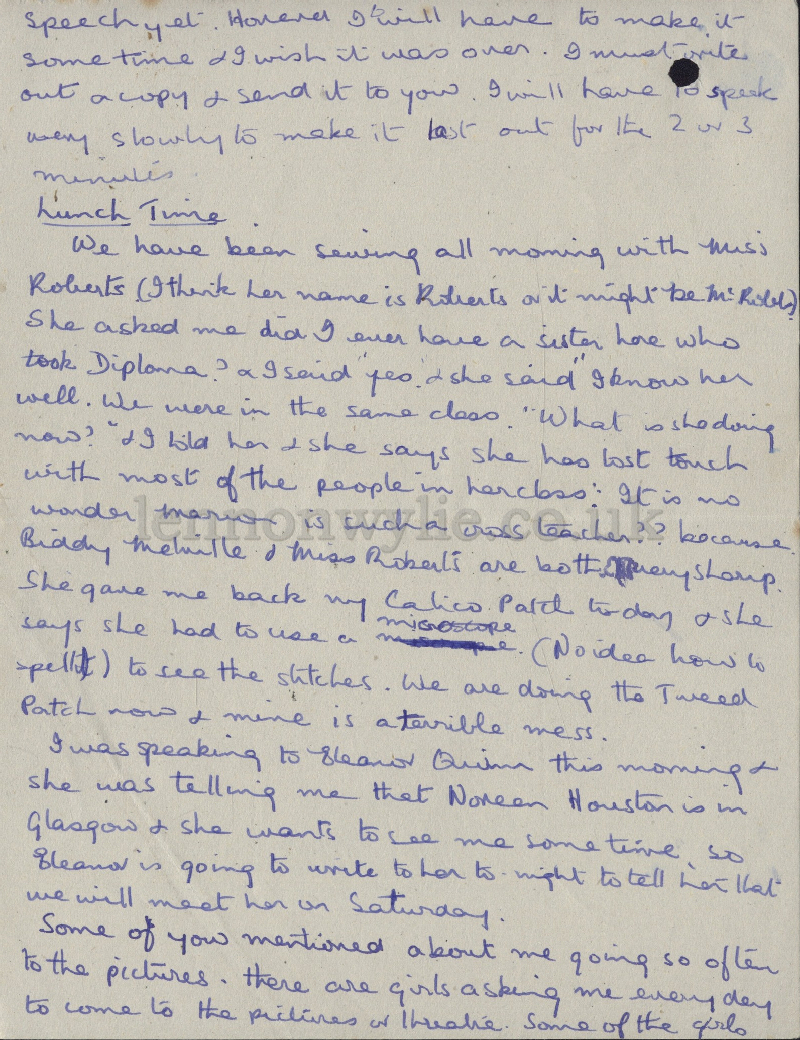 speech yet. However I will have to make it
sometime & I wish it was over. I must write
out a copy & send it to you. I will have to speak
very slowly to make it last out for the 2 or 3
minutes
Lunch Time
We have been sewing all morning with Miss
Roberts (I think her name is Roberts or it might be Mc Robbs)
She asked me did I ever have a sister here who
took Diploma? & I said "yes" & she said "I know her
well. We were in the same class." What is she doing
now?" & I told her & she says she has lost touch
with most of the people in her class. It is no
wonder Marion is such a cross teacher?? because
lennonwylie.co.uk
Biddy Melville & Miss Roberts are both very sharp.
She gave me back my Calico Patch to-day & she
microscope
says she had to use a . (No idea how to
spell it) to see the stitches. We are doing the Tweed
Patch now & mine is a terrible mess.
I was speaking to Eleanor Quinn this morning &
she was telling me that Noreen Houston is in
Glasgow & she wants to see me sometime, so
Eleanor is going to write to her to-night to tell her that
we will meet her on Saturday.
Some of you mentioned about me going so often
to the pictures. There are girls asking me every day
to come to the pictures or theatre. Some of the girls